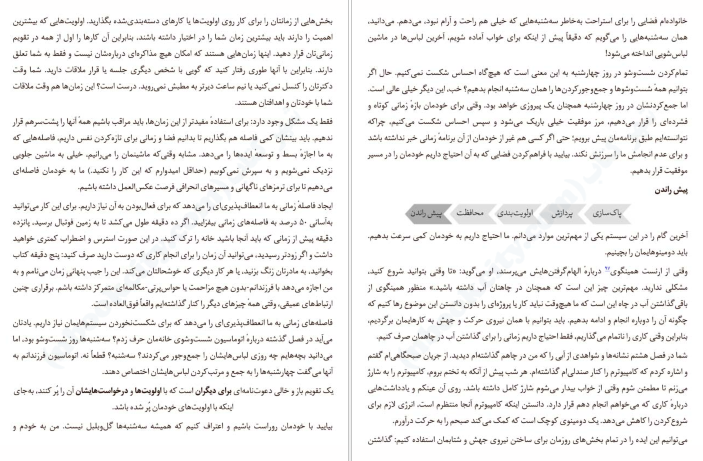 خانواده‌ام فضایی را برای استراحت به‌خاطر سه‌شنبه‌هایی که خیلی هم راحت و آرام نبود، می‌دهم. می‌دانید،
همان سه‌شنبه‌هایی را می‌گویم که دقیقاً پیش از اینکه برای خواب آماده شویم، آخرین لباس‌ها در ماشین
لباس‌شویی انداخته می‌شود!
تمام‌کردن شست‌وشو در روز چهارشنبه به این معنی است که هیچ‌گاه احساس شکست نمی‌کنیم. حال اگر
بتوانیم همهٔ شست‌وشوها و جمع‌وجورکردن‌ها را همان سه‌شنبه انجام بدهیم؟ خب، این دیگر خیلی عالی است.
اما جمع‌کردنشان در روز چهارشنبه همچنان یک پیروزی خواهد بود. وقتی برای خودمان بازهٔ زمانی کوتاه و
فشرده‌ای را قرار می‌دهیم، مرز موفقیت خیلی باریک می‌شود و سپس احساس شکست می‌کنیم، چراکه
نتوانسته‌ایم طبق برنامه‌مان پیش برویم؛ حتی اگر کسی هم غیر از خودمان از آن برنامهٔ زمانی خبر نداشته باشد
و برای عدم انجامش ما را سرزنش نکند. بیایید با فراهم‌کردن فضایی که به آن احتیاج داریم خودمان را در مسیر
موفقیت قرار بدهیم.
پیش راندن
پاک‌سازی پردازش اولویت‌بندی محافظت پیش راندن
آخرین گام را در این سیستم یکی از مهم‌ترین موارد می‌دانم. ما احتیاج داریم به خودمان کمی سرعت بدهیم.
باید دومینوهایمان را بچینیم.
وقتی از ارنست همینگوی دربارهٔ الهام‌گرفتن‌هایش می‌پرسند، او می‌گوید: «تا وقتی بتوانید شروع کنید،
مشکلی ندارید. مهم‌ترین چیز این است که همچنان در چاهتان آب داشته باشید.» منظور همینگوی از
باقی‌گذاشتن آب در چاه این است که ما هیچ‌وقت نباید کار یا پروژه‌ای را بدون دانستن این موضوع رها کنیم که
چگونه آن را دوباره انجام و ادامه بدهیم. باید بتوانیم با همان نیروی حرکت و جهش به کارهایمان برگردیم،
بنابراین وقتی کاری را ناتمام می‌گذاریم، فقط احتیاج داریم زمانی را برای گذاشتن آب در چاهمان صرف کنیم.
شما در فصل هشتم نشانه‌ها و شواهدی از آبی را که من در چاهم گذاشته‌ام دیدید. از جریان صبحگاهی‌ام گفتم
و اشاره کردم که کامپیوترم را کنار صندلی‌ام گذاشته‌ام. هر شب پیش از آنکه به تختم بروم، کامپیوترم را به شارژ
می‌زنم تا مطمئن شوم وقتی از خواب بیدار می‌شوم شارژ کامل داشته باشد. روی آن عینکم و یادداشت‌هایی
دربارهٔ کاری که می‌خواهم انجام دهم قرار دارد. دانستن اینکه کامپیوترم آنجا منتظرم است، انرژی لازم برای
شروع‌کردن را کاهش می‌دهد. یک دومینوی کوچک است که کمک می‌کند صبحم را به حرکت درآورم.
می‌توانیم این ایده را در تمام بخش‌های روزمان برای ساختن نیروی جهش و شتابمان استفاده کنیم: گذاشتن
بخش‌هایی از زمانتان را برای کار روی اولویت‌ها یا کارهای دسته‌بندی‌شده بگذارید. اولویت‌هایی که بیشترین
اهمیت را دارند باید بیشترین زمان شما را در اختیار داشته باشند. بنابراین آن کارها را اول از همه در تقویم
زمانی‌تان قرار دهید. اینها زمان‌هایی هستند که امکان هیچ مذاکره‌ای درباره‌شان نیست و فقط به شما تعلق
دارند. بنابراین با آنها طوری رفتار کنید که گویی با شخص دیگری جلسه یا قرار ملاقات دارید. شما وقت
دکترتان را کنسل نمی‌کنید یا نیم ساعت دیرتر به مطبش نمی‌روید. درست است؟ این زمان‌ها هم وقت ملاقات
شما با خودتان و اهدافتان هستند.
فقط یک مشکل وجود دارد: برای استفادهٔ مفیدتر از این زمان‌ها، باید مراقب باشیم همهٔ آنها را پشت‌سرهم قرار
ندهیم. باید بینشان کمی فاصله هم بگذاریم تا بدانیم فضا و زمانی برای تازه‌کردن نفس داریم. فاصله‌هایی که
به ما اجازهٔ بسط و توسعهٔ ایده‌ها را می‌دهد. مشابه وقتی‌که ماشینمان را می‌رانیم. خیلی به ماشین جلویی
نزدیک نمی‌شویم و به سپرش نمی‌کوبیم (حداقل امیدوارم که این کار را نکنید.) ما به خودمان فاصله‌ای
می‌دهیم تا برای ترمزهای ناگهانی و مسیرهای انحرافی فرصت عکس‌العمل داشته باشیم.
ایجاد فاصلهٔ زمانی به ما انعطاف‌پذیری‌ای را می‌دهد که برای فعال‌بودن به آن نیاز داریم. برای این کار می‌توانید
به‌آسانی ۵۰ درصد به فاصله‌های زمانی بیفزایید. اگر ده دقیقه طول می‌کشد تا به زمین فوتبال برسید، پانزده
دقیقه پیش از زمانی که باید آنجا باشید خانه را ترک کنید. در این صورت استرس و اضطراب کمتری خواهید
داشت و اگر زودتر رسیدید، می‌توانید آن زمان را برای انجام کاری که دوست دارید صرف کنید: پنج دقیقه کتاب
بخوانید، به مادرتان زنگ بزنید، یا هر کار دیگری که خوشحالتان می‌کند. این را جیب پنهانی زمان می‌نامم و به
من اجازه می‌دهد با فرزندانم-بدون هیچ مزاحمت یا حواس‌پرتی-مکالمه‌ای متمرکز داشته باشم. برقراری چنین
ارتباط‌های عمیقی، وقتی همهٔ چیزهای دیگر را کنار گذاشته‌ایم واقعاً فوق‌العاده است.
فاصله‌های زمانی به ما انعطاف‌پذیری‌ای را می‌دهد که برای شکست‌نخوردن سیستم‌هایمان نیاز داریم. یادتان
می‌آید در فصل گذشته دربارهٔ اتوماسیون شست‌وشوی خانه‌مان حرف زدم؟ سه‌شنبه‌ها روز شست‌وشو بود، اما
می‌دانید بچه‌هایم چه روزی لباس‌هایشان را جمع‌وجور می‌کردند؟ سه‌شنبه؟ قطعاً نه. اتوماسیون فرزندانم به
آنها می‌گفت چهارشنبه‌ها را به جمع و مرتب‌کردن لباس‌هایشان اختصاص دهند.
یک تقویم باز و خالی دعوت‌نامه‌ای برای دیگران است که با اولویت‌ها و درخواست‌هایشان آن را پُر کنند، به‌جای
اینکه با اولویت‌های خودمان پُر شده باشد.
بیایید با خودمان روراست باشیم و اعتراف کنیم که همیشه سه‌شنبه‌ها گل‌وبلبل نیست. من به خودم و